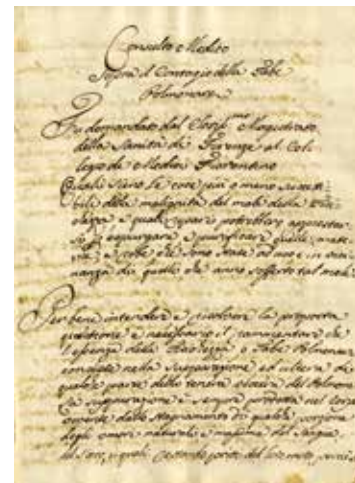 Consulto Medico
Sopra il Contagio della Tabe
Polmonare
Fu domandato dal Clariss.mo Magistrato
della Sanità di Firenze al Col-
legio de Medici Fiorentino
Quali sieno le cose più o meno suscetti-
bili della malignità del male della
e quali ripari potrebbero
espurgare e purificare quelle mate-
rie, e robe che sono state ad uso e in vici-
nanza di quelli che anno sofferto tal male
Per bene intendere e risolvere la proposta
questione è necessario il rammentare che
l'essenza della o Tabe Polmonare
consiste nella suppurazione ed ulcera di
qualche parte della tenera del Polmone
la suppurazione è sempre prodotta
dallo stagnamento di qualche porzione
degli umori naturali e massime del Sangue